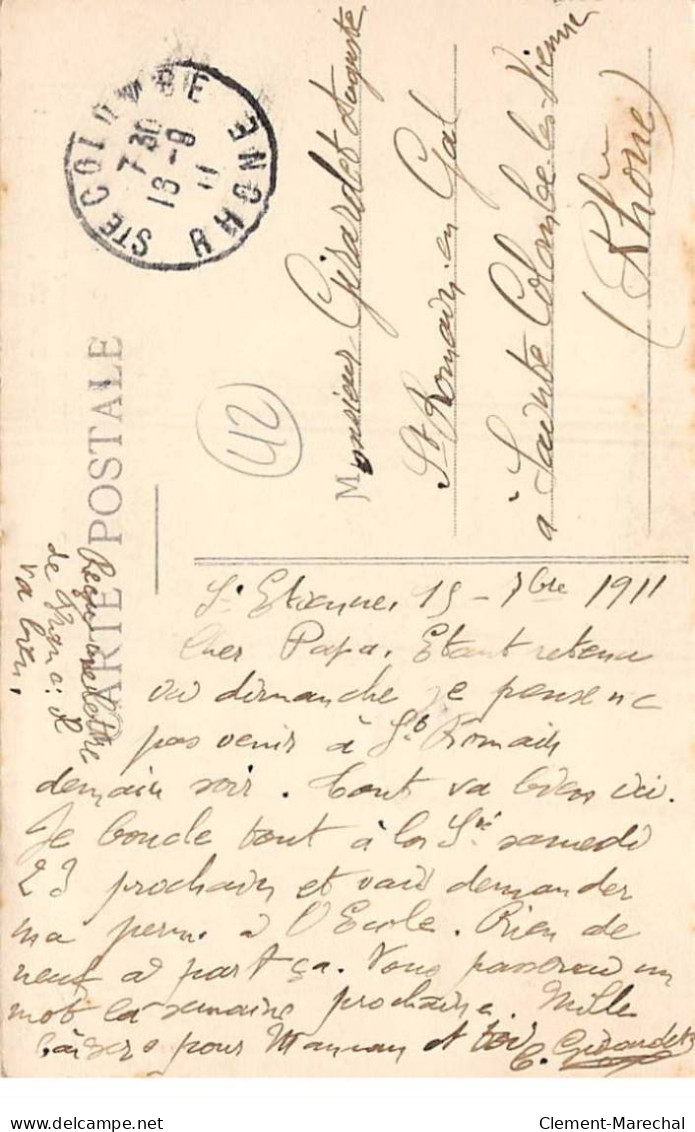 STE COLOMBE
7 30
16 - 9
11
RHONE
CARTE POSTALE
42
Monsieur Girardet Auguste
St Romain en Gal
à Sainte Colombe-les-Vienne
(Rhône)
St Etienne, 15 - 7bre 1911
Cher Papa. Etant retenu
ici dimanche je pense ne
pas venir à St Romain
demain soir. Tout va bien ici.
Je boucle tout à la Sté samedi
23 prochain et vais demander
ma perm. à l'Ecole. Rien de
neuf à part ça. Vous passerai un
mot la semaine prochaine. Mille
baisers pour Maman et toi
C. Girardet
Reçu une lettre
de
va bien.
Clement-Marechal